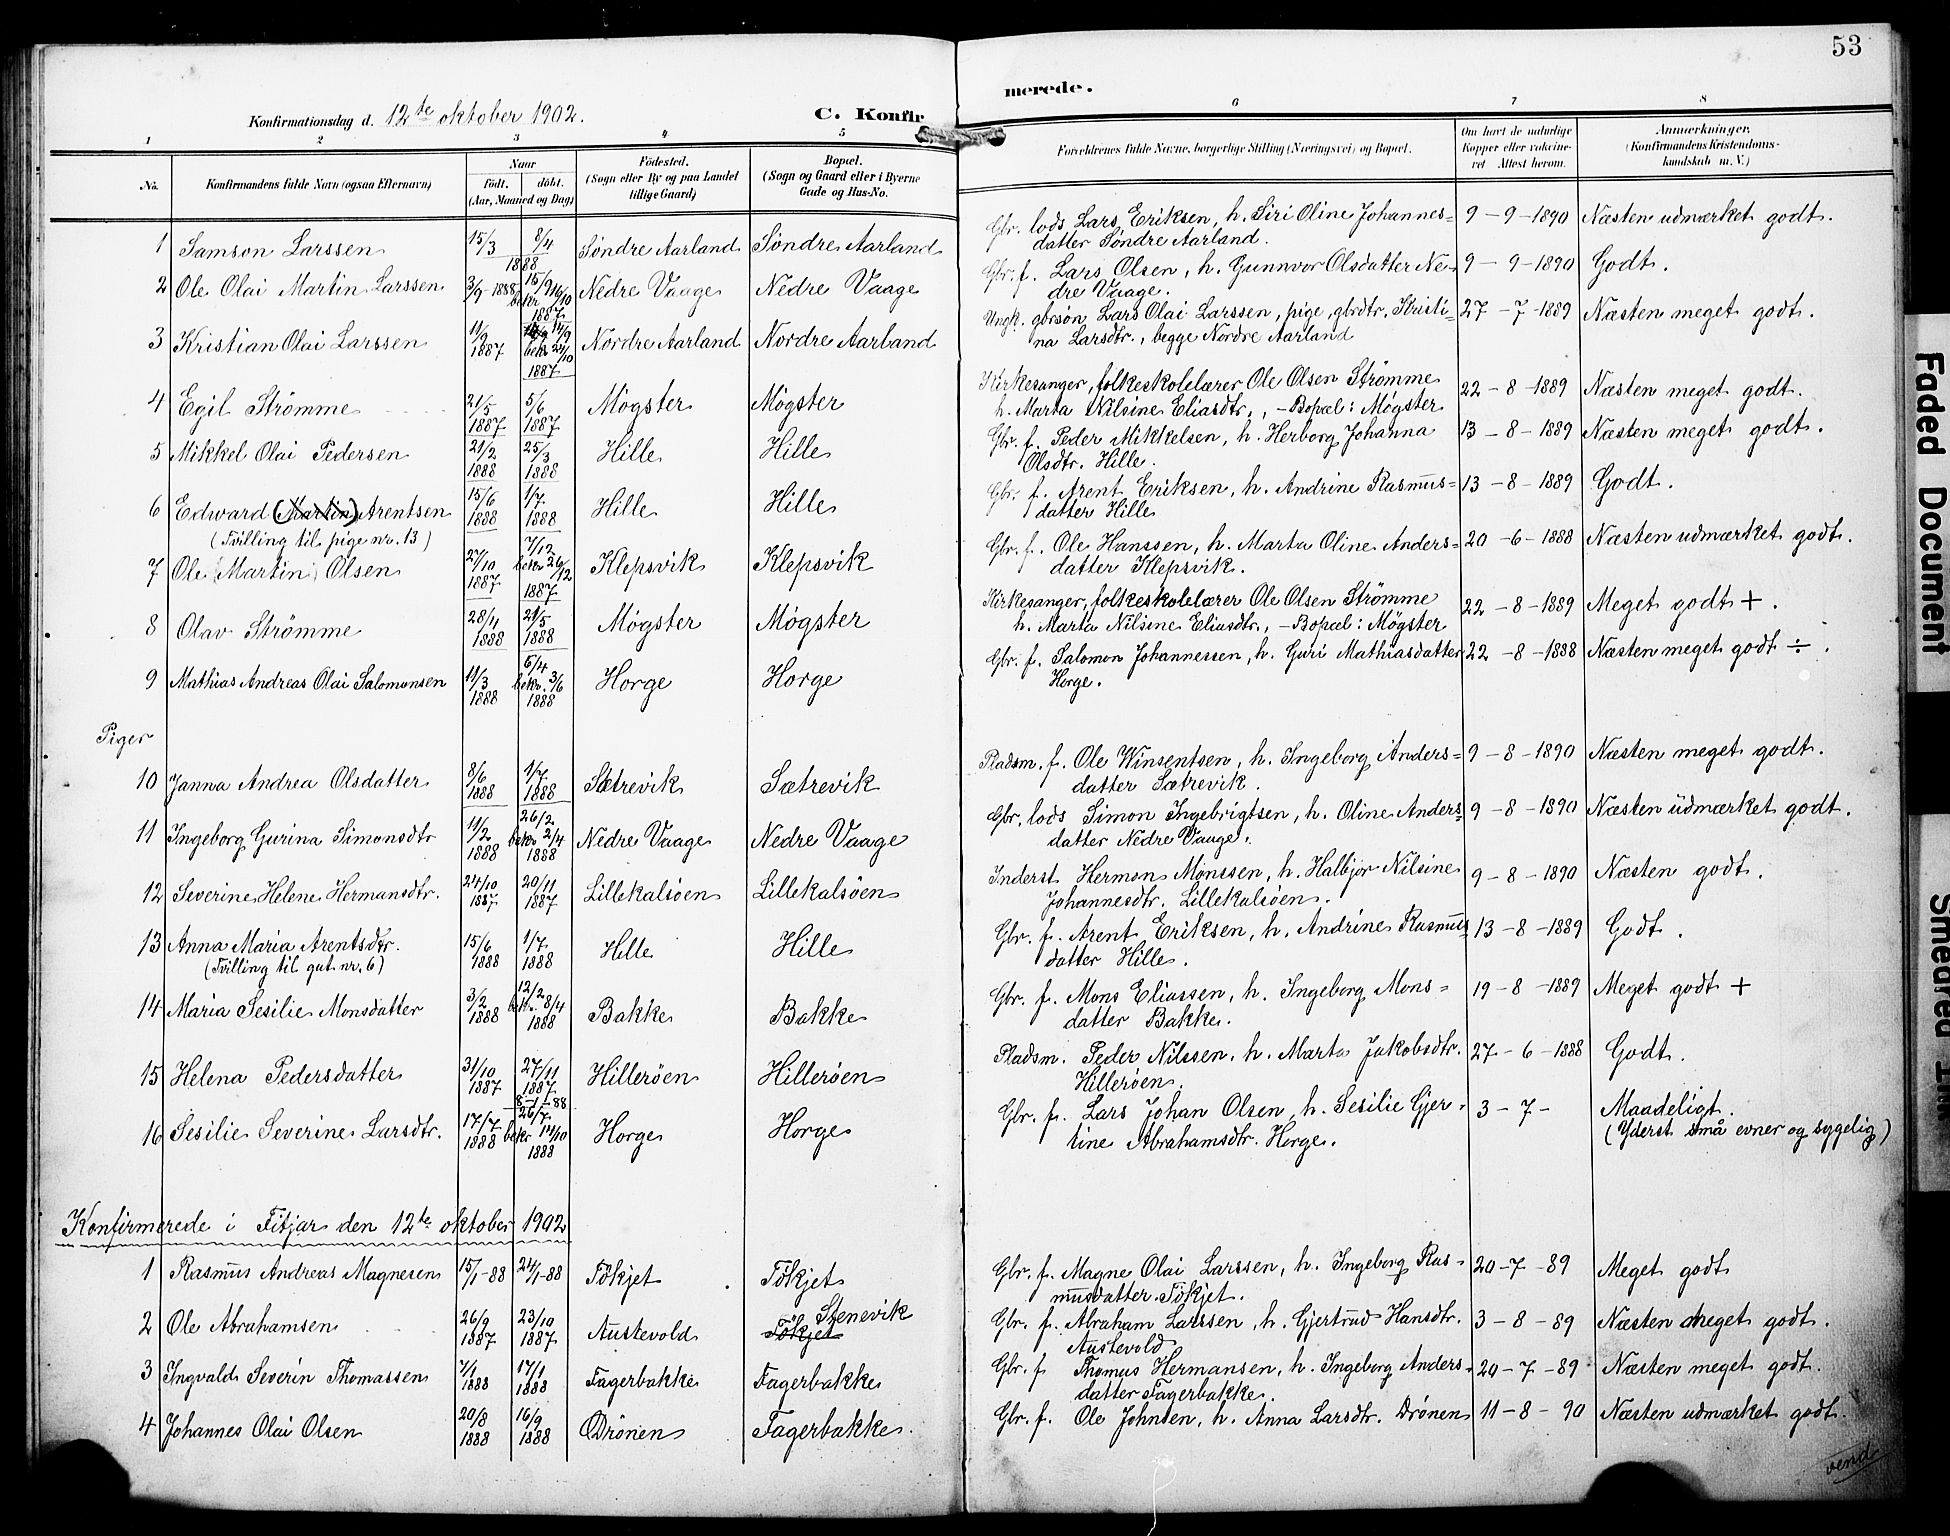 53
Konfirmationsdag d. 12te oktober 1902. C. Konfirmerede.
1 2 3 4 5 6 7 8
No. Konfirmandens fulde Navn (ogsaa Efternavn) Naar födt. döbt. (Aar, Maaned og Dag) Födested. (Sogn eller By og paa Landet tillige Gaard) Bopæl. (Sogn og Gaard eller i Byerne Gade og Hus-No. Forældrenes fulde Navne, borgerlige Stilling (Næringsvei) og Bopæl. Om havt de naturlige Kopper eller vaksineret Attest herom. Anmærkninger. (Konfirmandens Kristendomskundskab m. V.)
1 Samson Larssen 15/3 8/4 1888 Søndre Aarland Søndre Aarland Gbr. lods Lars Eriksen, h. Siri Oline Johannes= 9 - 9 - 1890 Næsten udmærket godt.
datter Søndre Aarland.
2 Ole Olai Martin Larssen 3/9 - 1888 15/9 bekr 16/10 1887 Nedre Vaage Nedre Vaage Gbr. f. Lars Olsen, h. Gunnvor Olsdatter Ne- 9 - 9 - 1890 Godt.
dre Vaage.
3 Kristian Olai Larssen 11/9 1887 14/9 bekr 23/10 1887 Nordre Aarland Nordre Aarland Ungk. gbrsøn Lars Olai Larssen, pige, gbrdtr. Kristi- 27 - 7 - 1889 Næsten meget godt.
na Larsdtr., begge Nordre Aarland
4 Egil Strömme 21/5 1887 5/6 1887 Møgster Møgster Kirkesanger, folkeskolelærer Ole Olsen Strømme 22 - 8 - 1889 Næsten meget godt.
h. Marta Nilsine Eliasdtr., - Bopæl: Møgster
5 Mikkel Olai Pedersen 21/2 1888 25/3 1888 Hille Hille Gbr. f. Peder Mikkelsen, h. Herborg Johanna 13 - 8 - 1889 Næsten meget godt.
Olsdtr. Hille.
6 Edward (Martin) Arentsen 15/6 1888 1/7 1888 Hille Hille Gbr. f. Arent Eriksen, h. Andrine Rasmus= 13 - 8 - 1889 Godt.
(Tvilling til pige nr. 13) datter Hille
7 Ole (Martin) Olsen 27/10 1887 7/12 bekr 26/12 1887 Klepsvik Klepsvik Gbr. f. Ole Hanssen, h. Marta Oline Anders= 20 - 6 - 1888 Næsten udmærket godt.
datter Klepsvik.
8 Olav Strömme 28/4 1888 21/5 1888 Møgster Møgster Kirkesanger, folkeskolelærer Ole Olsen Strømme 22 - 8 - 1889 Meget godt + .
h. Marta Nilsine Eliasdtr., - Bopæl: Møgster
9 Mathias Andreas Olai Salomonsen 11/3 1888 6/4 bekr. 3/6 1888 Horge Horge Gbr. f. Salomon Johannessen, h. Guri Mathiasdatter 22 - 8 - 1888 Næsten meget godt ÷ .
Horge.
Piger
10 Janna Andrea Olsdatter 8/6 1888 1/7 1888 Sætrevik Sætrevik Pladsm. f. Ole Winsentsen, h. Ingeborg Anders= 9 - 8 - 1890 Næsten meget godt.
datter Sætrevik.
11 Ingeborg Gurina Simonsdtr 11/2 1888 26/2 bekr 2/4 1888 Nedre Vaage Nedre Vaage Gbr. lods Simon Ingebrigtsen, h. Oline Anders= 9 - 8 - 1890 Næsten udmærket godt.
datter Nedre Vaage.
12 Severine Helene Hermansdtr. 24/10 1887 20/11 1887 Lillekalsöen Lillekalsöen Inderst Hermon Monssen, h. Halbjor Nilsine 9 - 8 - 1890 Næsten godt.
Johannesdtr. Lillekalsöen.
13 Anna Maria Arentsdtr. 15/6 1888 1/7 1888 Hille Hille Gbr. f. Arent Eriksen, h. Andrine Rasmus 13 - 8 - 1889 Godt.
(Tvilling til gut nr. 6) datter Hille.
14 Maria Sesilie Monsdatter 3/2 1888 12/2 bekr. 8/4 1888 Bakke Bakke Gbr. f. Mons Eliassen, h. Ingeborg Mons= 19 - 8 - 1889 Meget godt +
datter Bakke.
15 Helena Pedersdatter 31/10 1887 27/11 1887 8-1-88 Hilleröen Hilleröen Pladsm. Peder Nilssen, h. Marta Jakobsdtr. 27 - 6 - 1888 Godt.
Hilleröen.
16 Sesilie Severine Larsdtr. 17/7 1888 26/7 bekr 14/10 1888 Horge Horge Gbr. f. Lars Johan Olsen, h. Sesilie Gjer- 3 - 7 - Maadeligt.
tine Abrahamsdtr. Horge. (Yderst små evner og sygelig)
Konfirmerede i Fitjar den 12te oktober 1902
1 Rasmus Andreas Magnesen 15/1-88 24/1-88 Tökjet Tökjet Gbr. f. Magne Olai Larssen, h. Ingeborg Ras- 20 - 7 - 89 Meget godt
musdatter Tökjet.
2 Ole Abrahamsen 26/9 1887 23/10 1887 Austevold Tökjet Stenevik Gbr. f. Abraham Larssen, h. Gjertrud Hansdtr. 3 - 8 - 89 Næsten meget godt.
Austevold
3 Ingvald Severin Thomassen 7/1 1888 17/1 1888 Fagerbakke Fagerbakke Gbr. f Thomas Hermansen, h. Ingeborg Anders- 20 - 7 - 89 Næsten meget godt.
datter Fagerbakke.
4 Johannes Olai Olsen 20/8 1888 16/9 1888 Drönen Fagerbakke. Gbr. f. Ole Johnsen, h. Anna Larsdtr. Drönen 11 - 8 - 90 Næsten udmærket godt.
vend
Faded Document
Smeared Ink